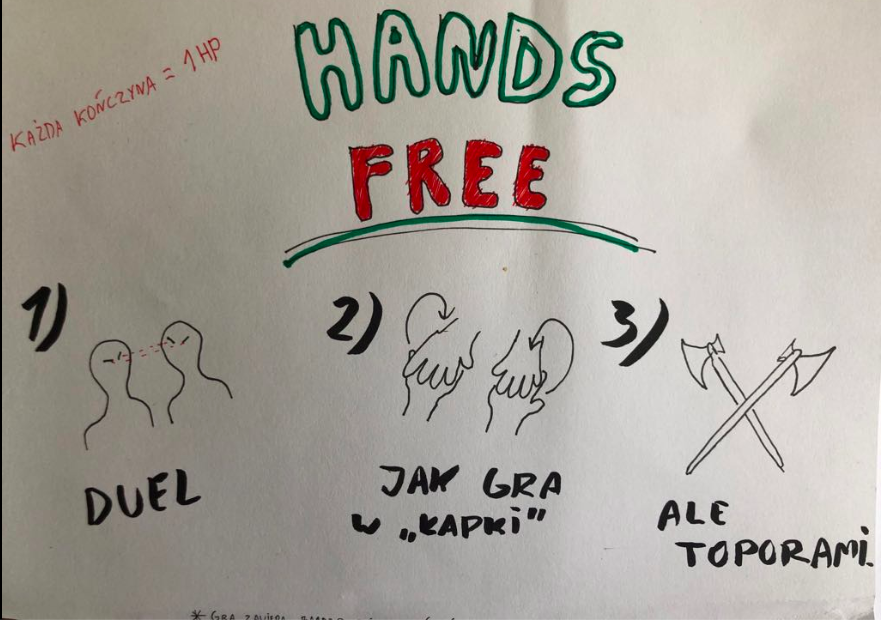 KAŻDA KOŃCZYNA = 1 HP
HANDS
FREE
1)
DUEL
2)
JAK GRA
W „KAPKI”
3)
ALE
TOPORAMI.
* GRA ZAWIERA